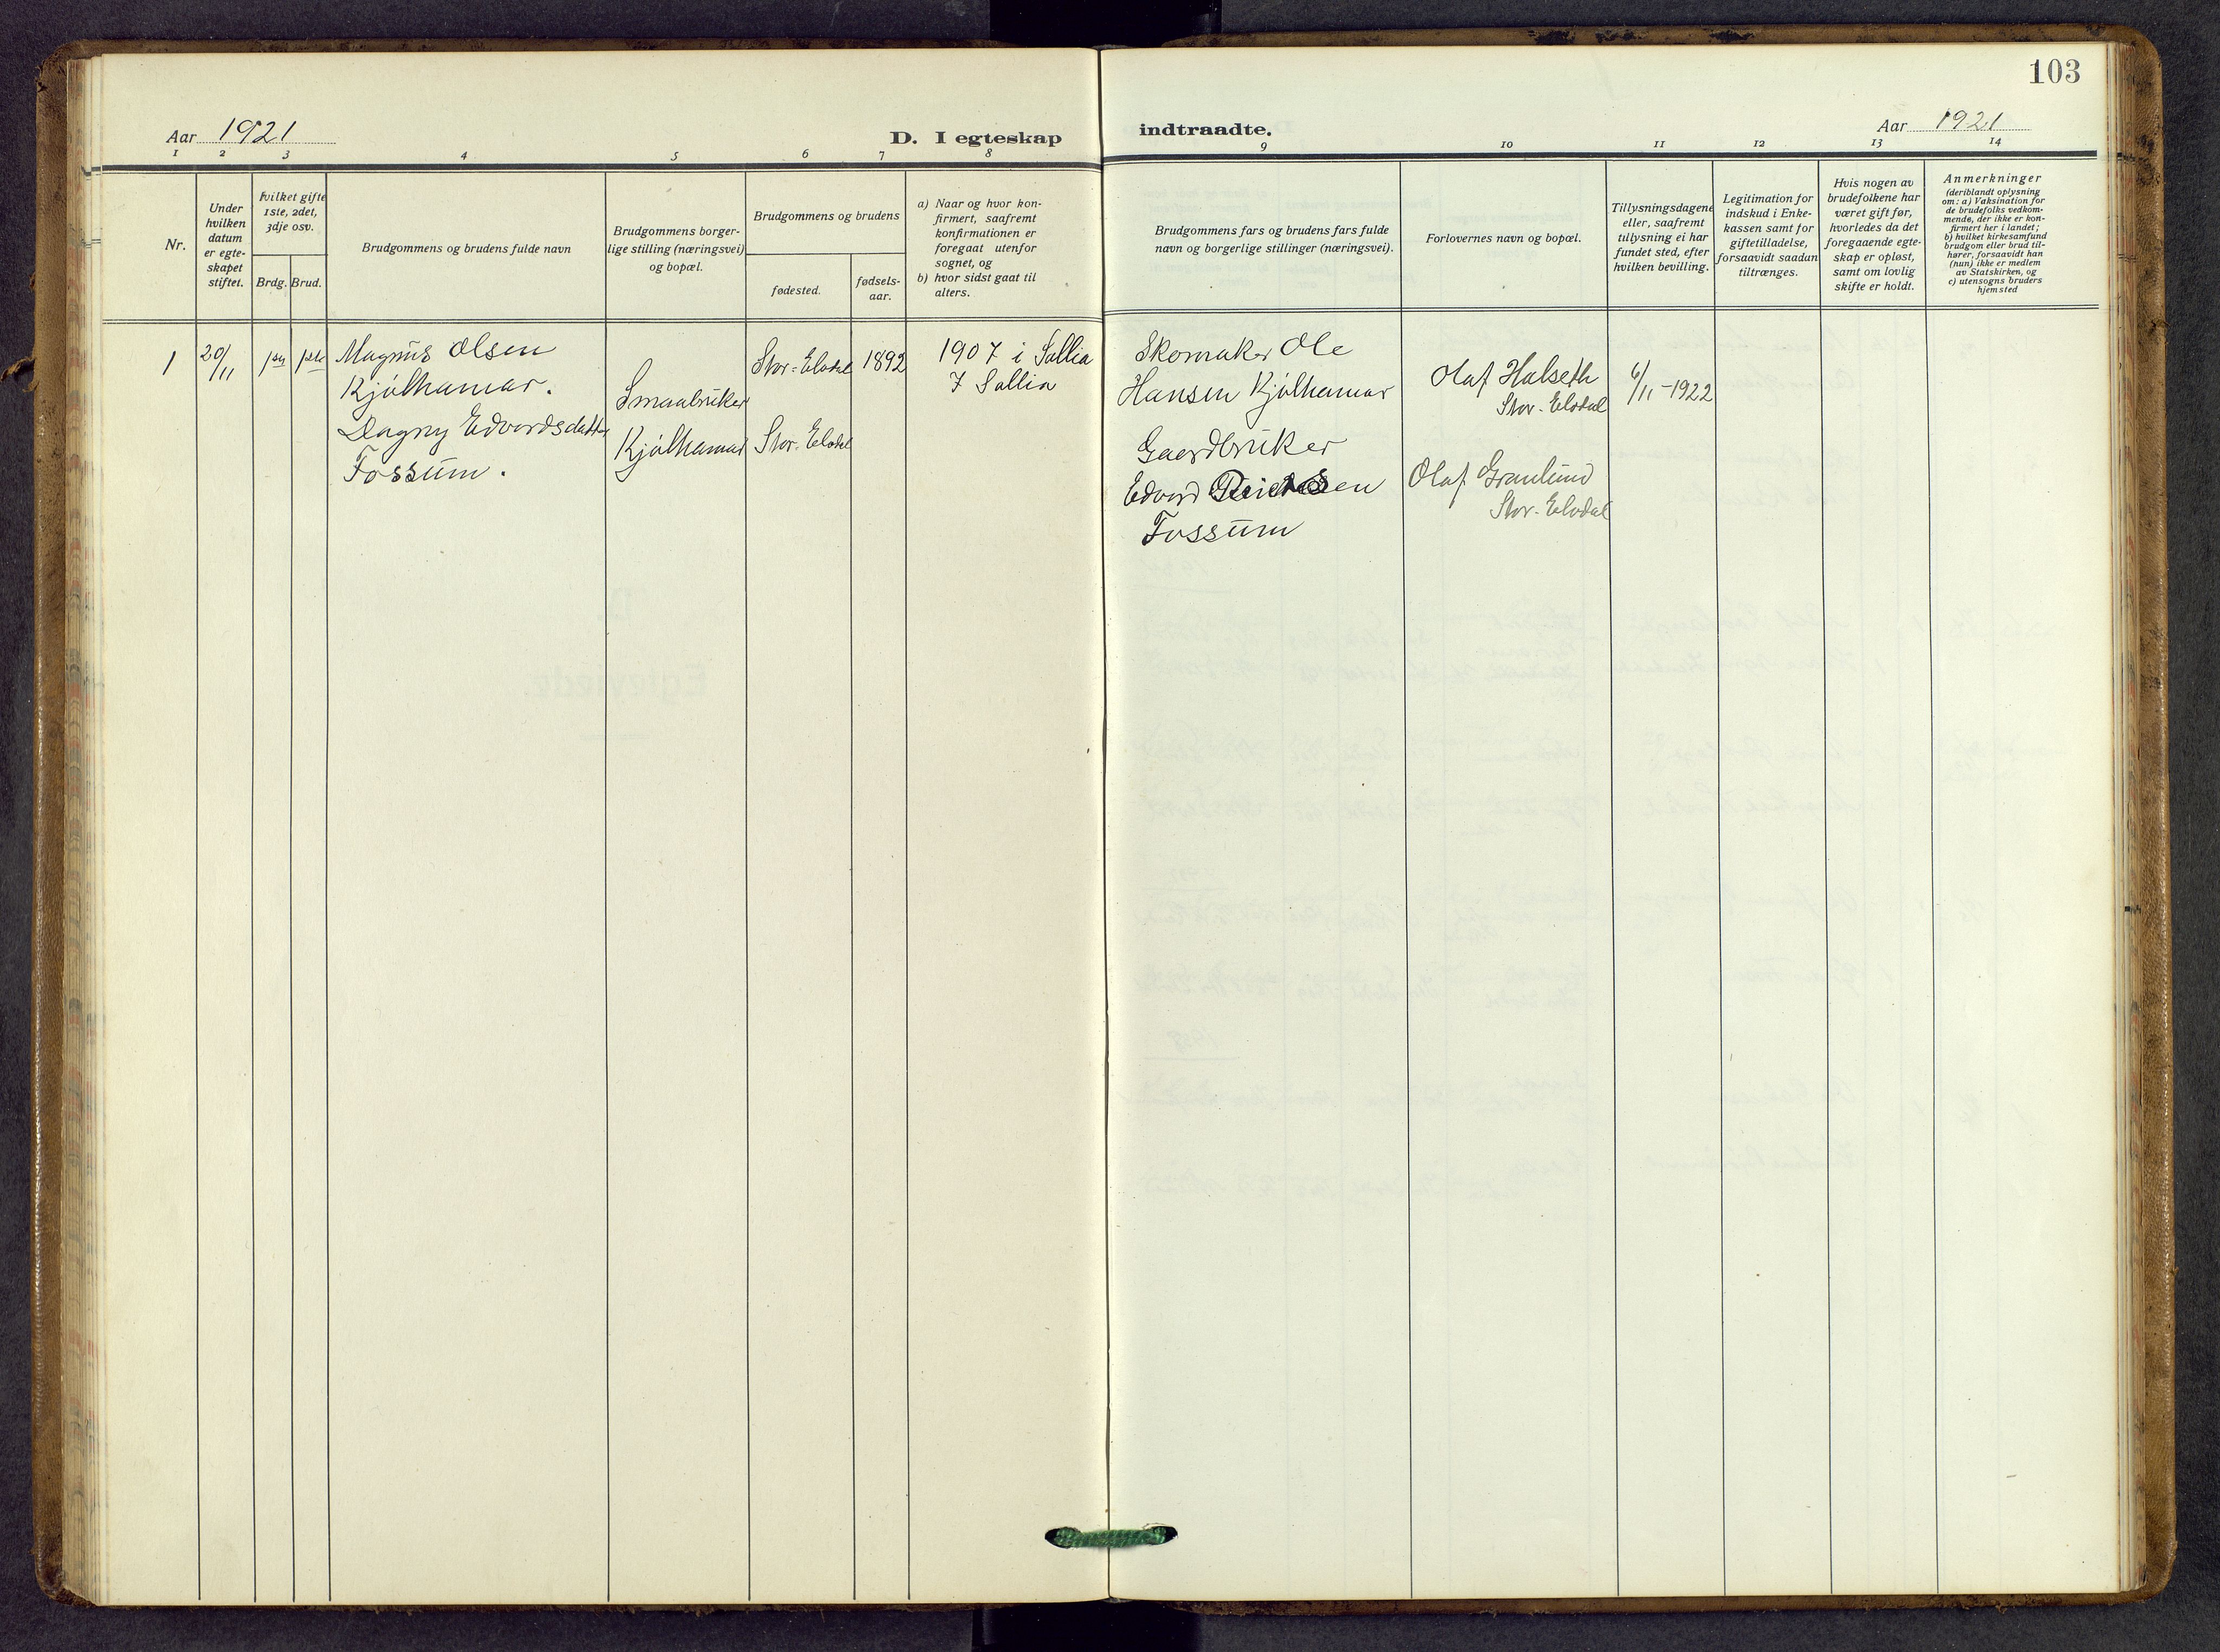 103
Aar 1921
D. I egteskap
indtraadte.
Aar 1921
1 2 3 4 5 6 7 8 9 10 11 12 13 14
Nr.
Under
hvilken
datum
er egte-
skapet
stiftet.
hvilket gifte
1ste, 2det,
3dje osv.
Brdg. Brud.
Brudgommens og brudens fulde navn
Brudgommens borger-
lige stilling (næringsvei)
og bopæl.
Brudgommens og brudens
fødested.
fødsels-
aar.
a) Naar og hvor kon-
firmert, saafremt
konfirmationen er
foregaat utenfor
sognet, og
b) hvor sidst gaat til
alters.
Brudgommens fars og brudens fars fulde
navn og borgerlige stillinger (næringsvei).
Forlovernes navn og bopæl.
Tillysningsdagene
eller, saafremt
tillysning ei har
fundet sted, efter
hvilken bevilling.
Legitimation for
indskud i Enke-
kassen samt for
giftetilladelse,
forsaavidt saadan
tiltrænges.
Hvis nogen av
brudefolkene har
været gift før,
hvorledes da det
foregaaende egte-
skap er opløst,
samt om lovlig
skifte er holdt.
Anmerkninger
(deriblandt oplysning
om: a) Vaksination for
de brudefolks vedkom-
mende, der ikke er kon-
firmert her i landet;
b) hvilket kirkesamfund
brudgom eller brud til-
hører, forsaavidt han
(hun) ikke er medlem
av Statskirken, og
c) utensogns bruders
hjemsted
1
20/11
1ste
1ste
Magnus Olsen
Kjølhamar.
Dagny Edvardsdatter
Fossum.
Smaabruker
Kjølhamar
Stor-Elvdal
Stor-Elvdal
1892
1907 i Sollia
7 Sollia
Skomaker Ole
Hansen Kjølhamar
Gaardbruker
Edvard
Fossum
Olaf Halseth
Stor-Elvdal
Olaf Granlund
Stor-Elvdal
6/11-1922